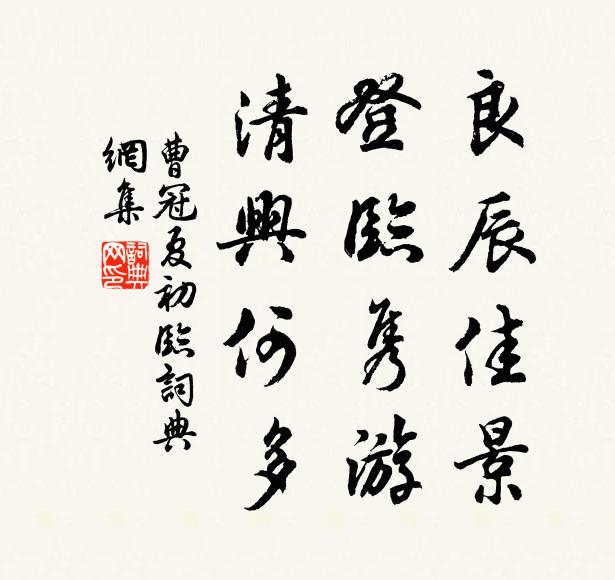 良辰佳景
登臨隽游
清興何多
曹冠夏初臨詞典
網集
詞典網印